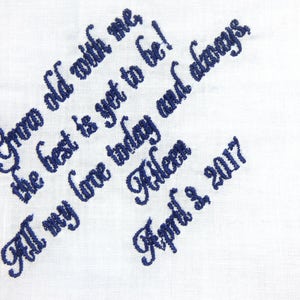 Grow old with me,
the best is yet to be!
All my love today and always,
Aileen
April 3, 2017